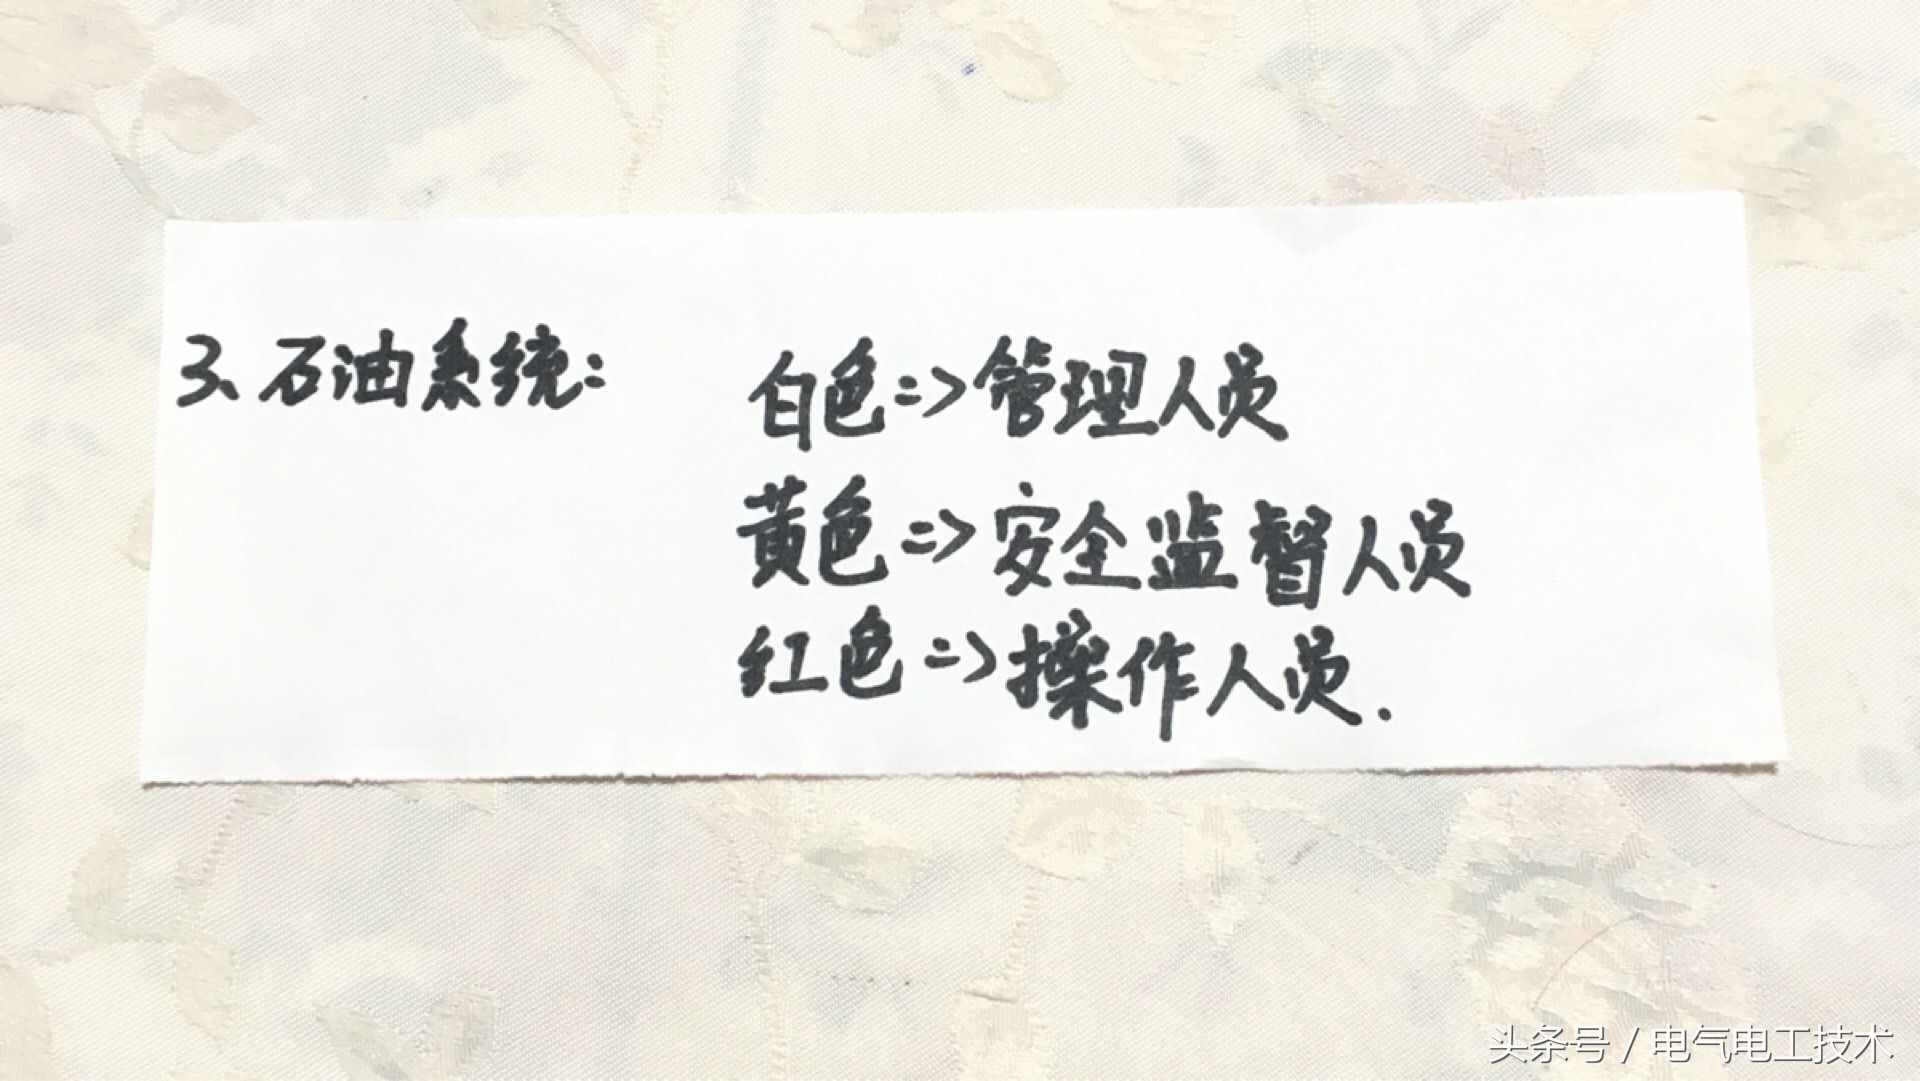 3、石油系统：
白色=>管理人员
黄色=>安全监督人员
红色=>操作人员.
头条号 / 电气电工技术